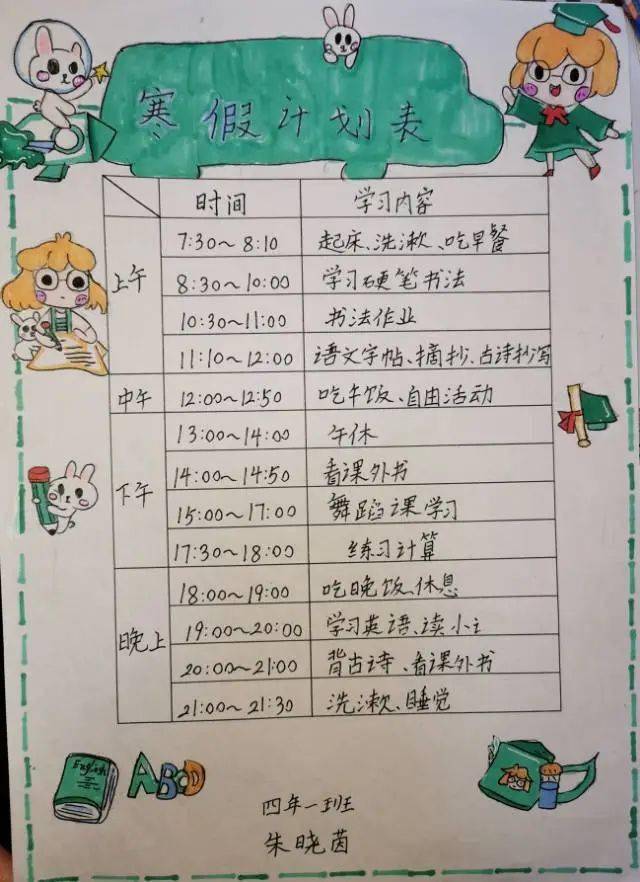 寒假计划表
时间 学习内容
上午
7:30~8:10 起床、洗漱、吃早餐
8:30~10:00 学习硬笔书法
10:30~11:00 书法作业
11:10~12:00 语文字帖、摘抄、古诗抄写
中午 12:00~12:50 吃午饭、自由活动
下午
13:00~14:00 午休
14:00~14:50 看课外书
15:00~17:00 舞蹈课学习
17:30~18:00 练习计算
晚上
18:00~19:00 吃晚饭、休息
19:00~20:00 学习英语、读小主
20:00~21:00 背古诗、看课外书
21:00~21:30 洗漱、睡觉
English
ABCD
四年一班
朱晓茵